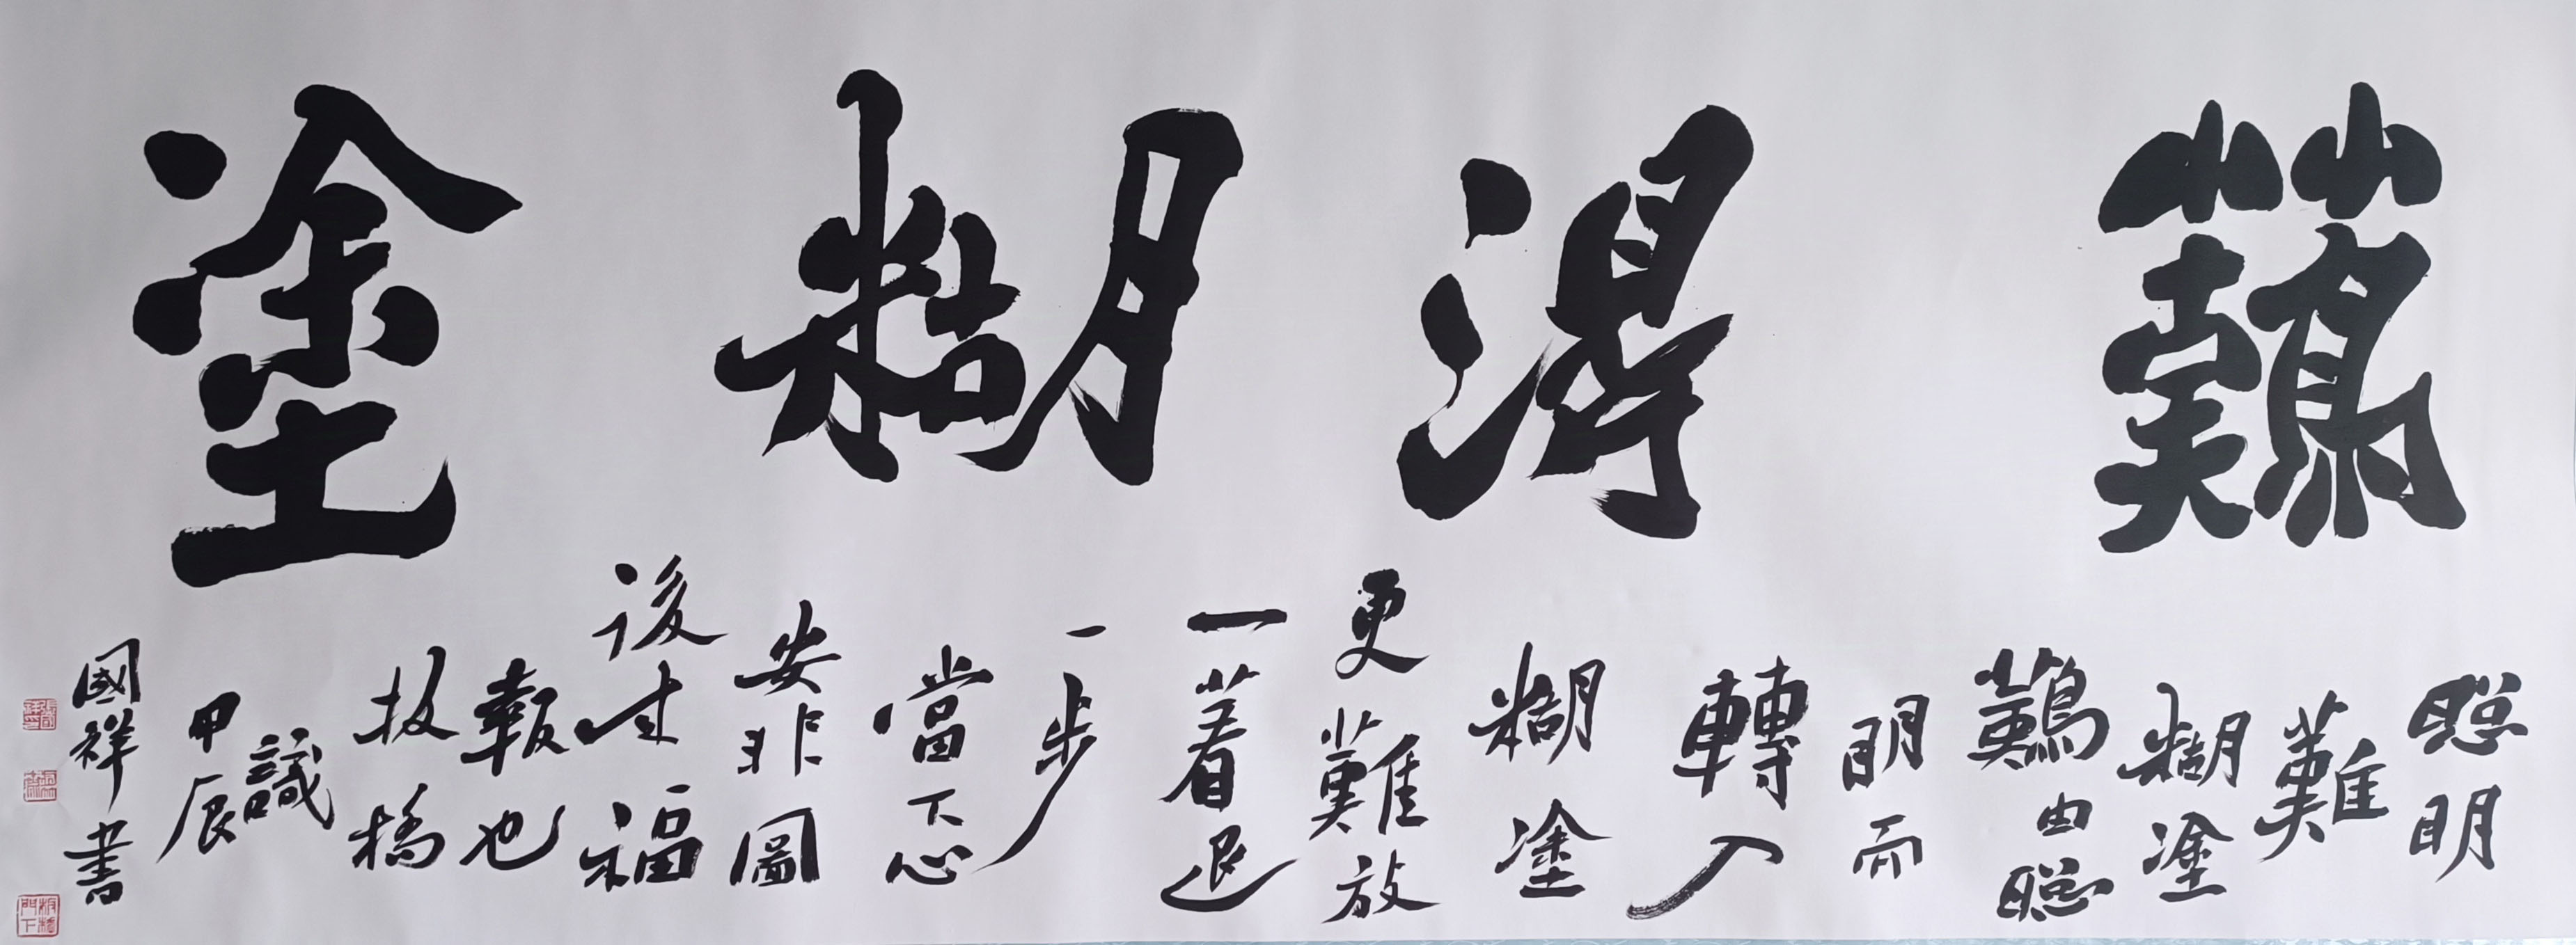 難得糊塗
聰明
難
糊塗
難由聰
明而
轉入
糊塗
更難放
一著退
一步
當下心
安非圖
後來福
報也
板橋
識
甲辰
國祥書
板橋門下